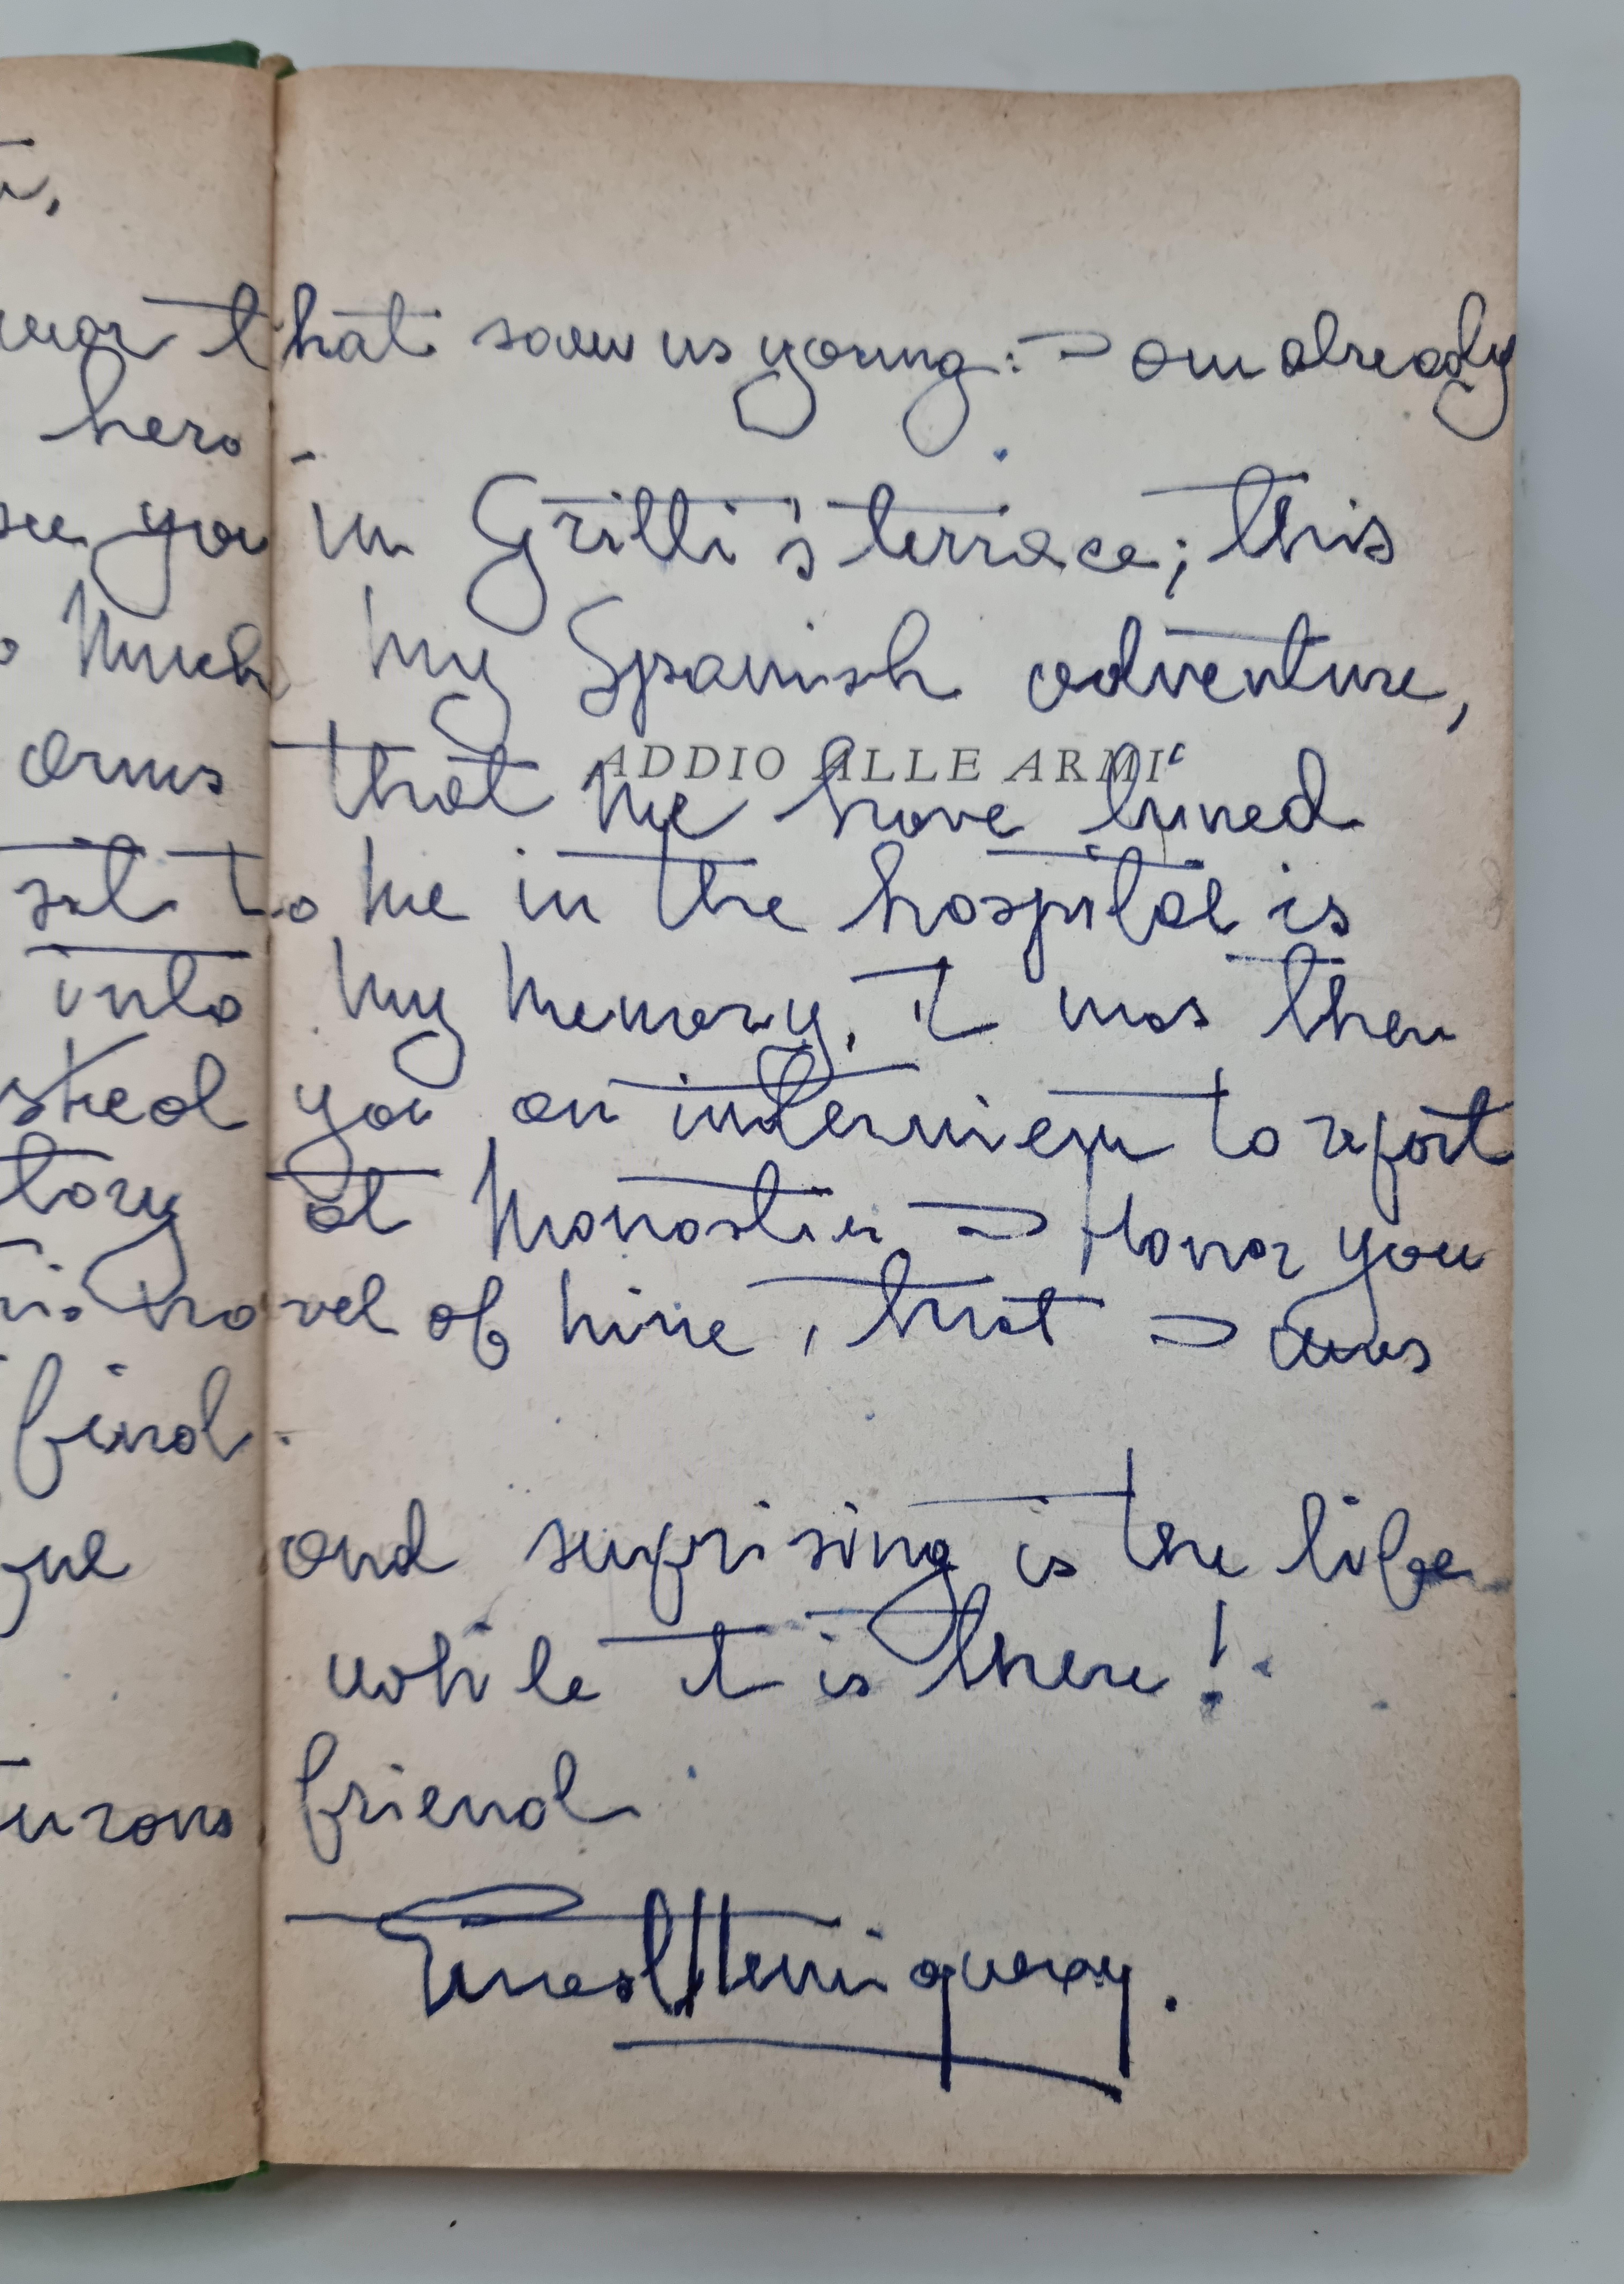 war that saw us young: I am already
hero -
see you in Gritti's terrace; this
much my Spanish adventure,
ADDIO ALLE ARMI
arms that we have lived
to me in the hospital is
into my memory, it was then
you an interview to report
at Monastier I Honor you
novel of mine, that I
find.
and surprising is the life
while it is there!
friend
Ernest Hemingway.